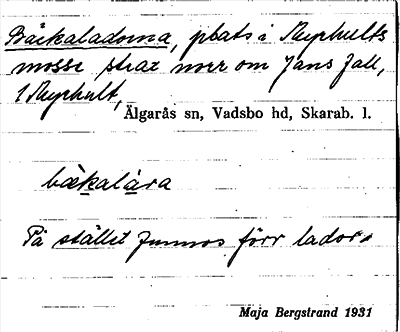 Bäckaladorna, plats i Myrhults
mosse strax norr om Jans fall,
1 Myrhult,
Älgarås sn, Vadsbo hd, Skarab. l.
bækalára
På stället funnos förr lador.
Maja Bergstrand 1931